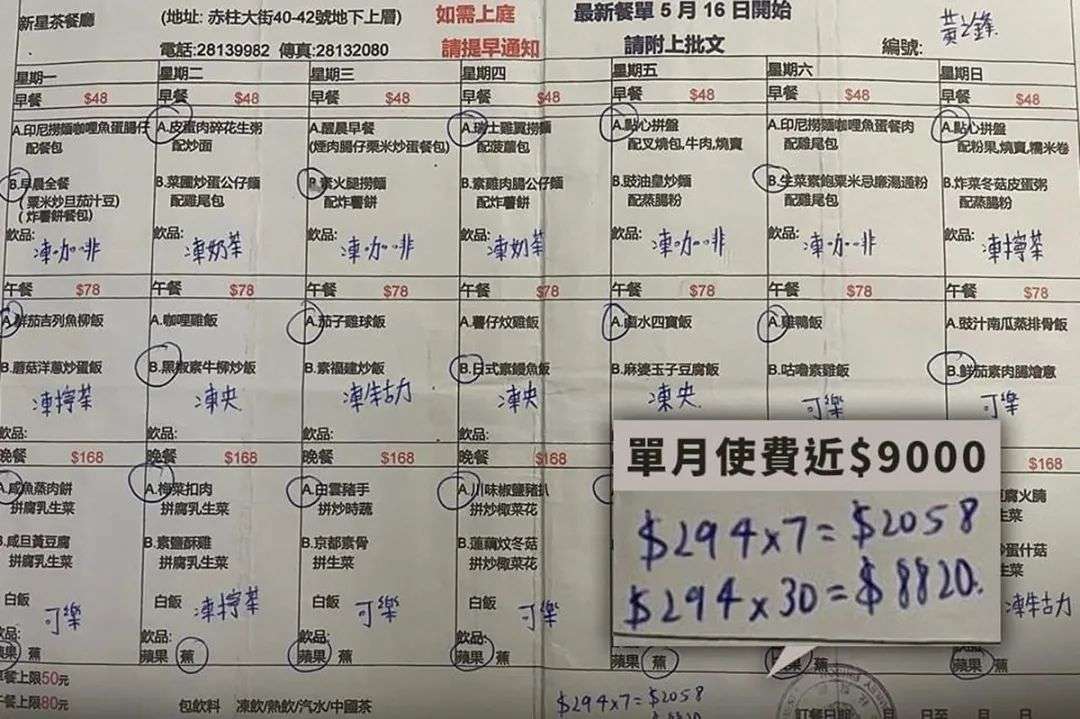 新星茶餐廳 (地址: 赤柱大街40-42號地下上層) 如需上庭 最新餐單 5 月 16 日開始 黃之鋒
電話:28139982 傳真:28132080 請提早通知 請附上批文 編號:
星期一 星期二 星期三 星期四 星期五 星期六 星期日
早餐 $48 早餐 $48 早餐 $48 早餐 $48 早餐 $48 早餐 $48 早餐 $48
A.印尼撈麵咖哩魚蛋腸仔 A.皮蛋肉碎花生粥 A.醒晨早餐 A.瑞士雞翼撈麵 A.點心拼盤 A.印尼撈麵咖哩魚蛋餐肉 A.點心拼盤
配餐包 配炒面 (煙肉腸仔粟米炒蛋餐包) 配菠蘿包 配叉燒包,牛肉,燒賣 配雞尾包 配粉果,燒賣,糯米卷
B.早晨全餐 B.菜圃炒蛋公仔麵 B.素火腿撈麵 B.素雞肉腸公仔麵 B.豉油皇炒麵 B.生菜素鮑粟米忌廉湯通粉 B.炸菜冬菇皮蛋粥
(粟米炒旦茄汁豆) 配雞尾包 配炸薯餅 配炸薯餅 配蒸腸粉 配雞尾包 配蒸腸粉
(炸薯餅餐包)
飲品: 飲品: 飲品: 飲品: 飲品: 飲品: 飲品:
凍咖啡 凍奶茶 凍咖啡 凍奶茶 凍咖啡 凍咖啡 凍檸茶
午餐 $78 午餐 $78 午餐 $78 午餐 $78 午餐 $78 午餐 $78 午餐 $78
A.鮮茄吉列魚柳飯 A.咖哩雞飯 A.茄子雞球飯 A.薯仔炆雞飯 A.鹵水四寶飯 A.雞鴨飯 A.豉汁南瓜蒸排骨飯
B.蘑菇洋蔥炒蛋飯 B.黑椒素牛柳炒飯 B.素福建炒飯 B.日式素鰻魚飯 B.麻婆玉子豆腐飯 B.咕嚕素雞飯 B.鮮茄素肉腸燴意
凍檸茶 凍央 凍朱古力 凍央 凍央 可樂 可樂
飲品: 飲品: 飲品: 飲品:
晚餐 $168 晚餐 $168 晚餐 $168 晚餐 $168 $168
A.咸魚蒸肉餅 A.梅菜扣肉 A.白雲豬手 A.川味椒鹽豬扒
拼腐乳生菜 拼腐乳生菜 拼炒時蔬 拼炒椰菜花
B.咸旦黃豆腐 B.素鹽酥雞 B.京都素骨 B.蓮藕炆冬菇
拼腐乳生菜 拼腐乳生菜 拼生菜 拼炒椰菜花
白飯 白飯 白飯 白飯
可樂 凍檸茶 可樂 可樂 凍朱古力
飲品: 飲品: 飲品: 飲品:
蘋果 蕉 蘋果 蕉 蘋果 蕉 蘋果 蕉 蘋果 蕉 蘋果 蕉 蘋果 蕉
單月使費近$9000
$294x7=$2058
$294x30=$8820.
早餐上限50元
午餐上限80元 包飲料 凍飲/熱飲/汽水/中國茶
$294x7=$2058
訂餐日期 月 日至 月